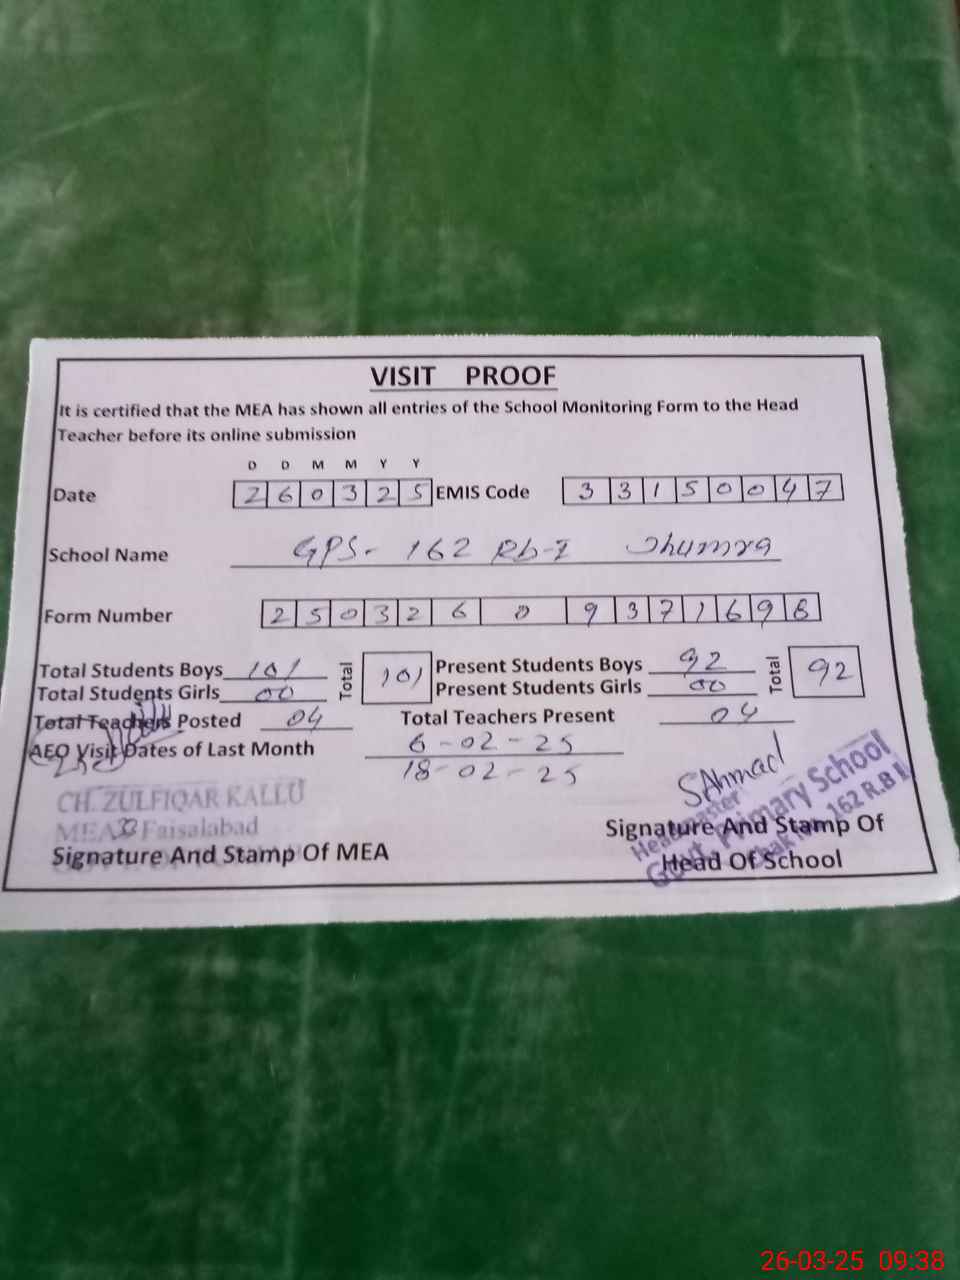 VISIT PROOF
It is certified that the MEA has shown all entries of the School Monitoring Form to the Head
Teacher before its online submission
D D M M Y Y
Date 2 6 0 3 2 5 EMIS Code 3 3 1 5 0 0 4 7
School Name GPS- 162 Rb-I Jhumra
Form Number 2 5 0 3 2 6 0 9 3 7 1 6 9 8
Total Students Boys 101 Total 101 Present Students Boys 92 Total 92
Total Students Girls 00 Present Students Girls 00
Total Teachers Posted 04 Total Teachers Present 04
AEO Visit Dates of Last Month 6-02-25
18-02-25
SAhmad
CH. ZULFIQAR KALLU
MEA 33 Faisalabad
Signature And Stamp Of MEA
Signature And Stamp Of
Head Of School
Headmaster
Govt. Primary School
Chak No. 162 R.B I
26-03-25 09:38